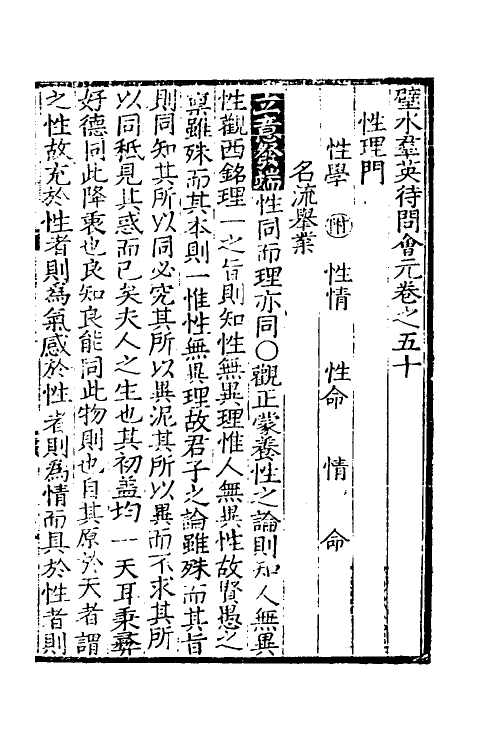 璧水羣英待問會元卷之五十
性理門
性學 附 性情 性命 情 命
名流舉業
立意發端性同而理亦同○觀正蒙養性之論則知人無異
性觀西銘理一之旨則知性無異理惟人無異性故賢愚之
稟雖殊而其本則一惟性無異理故君子之論雖殊而其旨
則同知其所以同必究其所以異泥其所以異而不求其所
以同秪見其惑而已矣夫人之生也其初盖均一天耳秉彛
好德同此降衷也良知良能同此物則也自其原於天者謂
之性故充於性者則爲氣感於性者則爲情而具於性者則